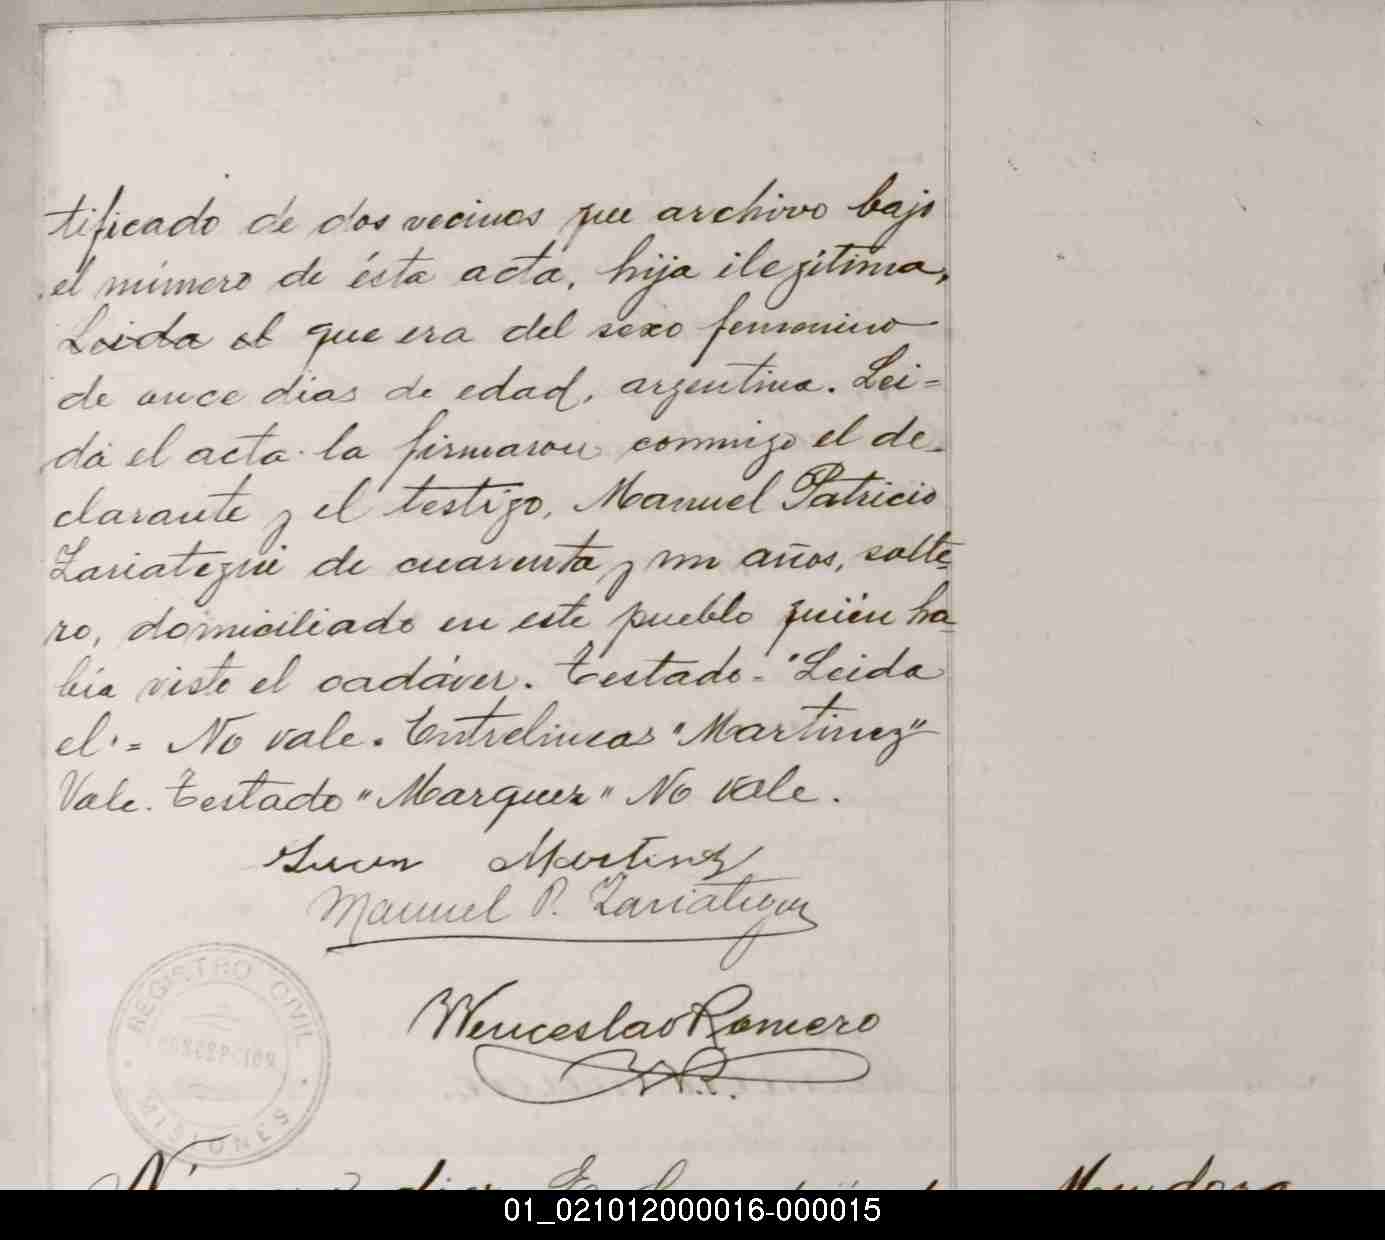 tificado de dos vecinos que archivo bajo
el número de ésta acta, hija ilegitima,
Leida el que era del sexo femenino
de once dias de edad, argentina. Lei=
da el acta la firmaron conmigo el de-
clarante y el testigo, Manuel Patricio
Zariategui de cuarenta y un años, solte-
ro, domiciliado en este pueblo quién ha-
bía visto el cadáver. Testado - "Leida
el" = No vale. Entrelineas "Martinez"
Vale. Testado "Marquez" No vale.
Juan Martinez
Manuel P. Zariategui
Wenceslao Romero
REGISTRO CIVIL
MISIONES
Mendoza
01_021012000016-000015